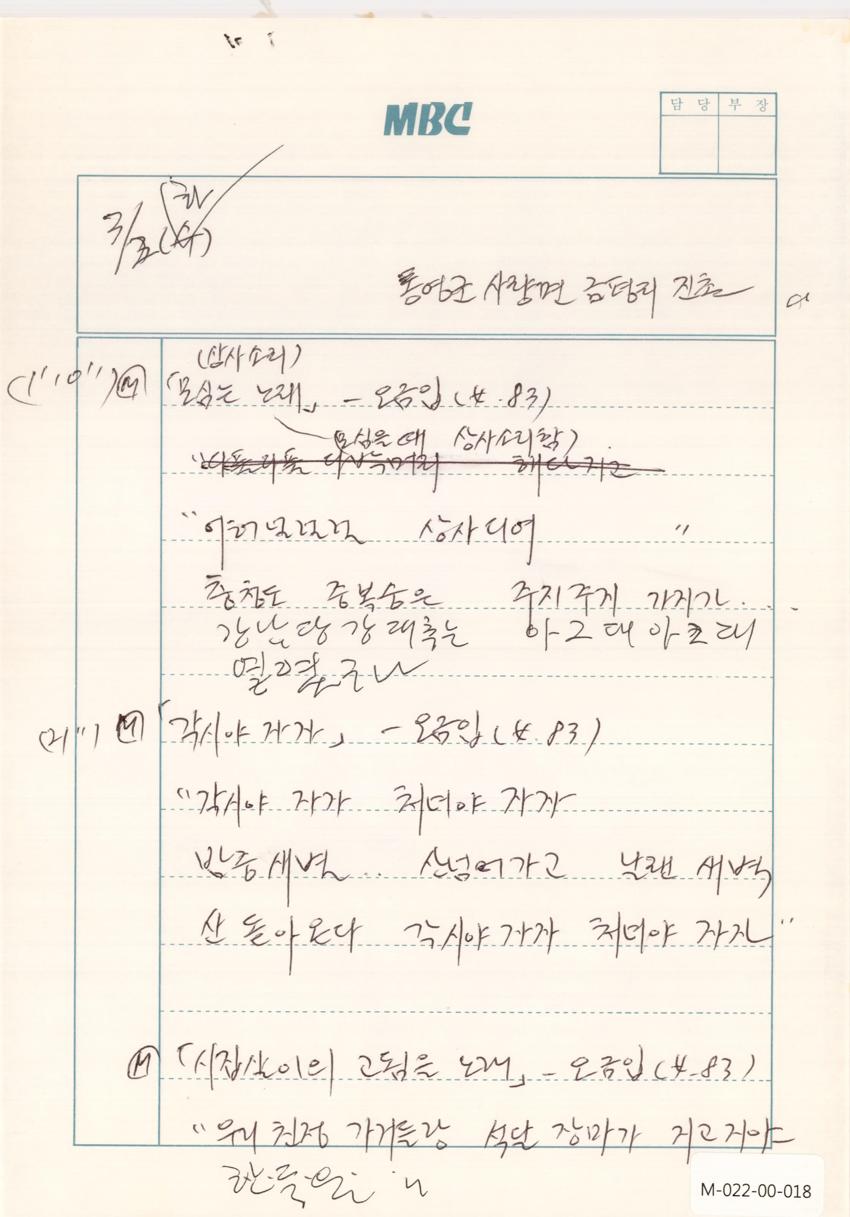 MBC
담당 부장
(화
3/3 (수)
통영군 사량면 금평리 진촌
(상사소리)
(1''10'') Ⓜ 「모심는 노래」 - 오금입 (女. 83)
모심을 때 상사소리함)
"어러널널널 상사디여 "
충청도 중복숭은 주지주지 가지가...
강남땅 강대추는 아그대 아그대
열렸구나
(21'') Ⓜ 「각시야 자자」 - 오금입 (女. 83)
"각시야 자자 처녀야 자자
밤중새별.. 산넘어가고 날랜 새벽
산 돌아온다 각시야 자자 처녀야 자자"
Ⓜ 「시집살이의 고됨을 노래」 - 오금입 (女. 83)
"우리 친정 가거들랑 석달 장마가 지고지야
M-022-00-018